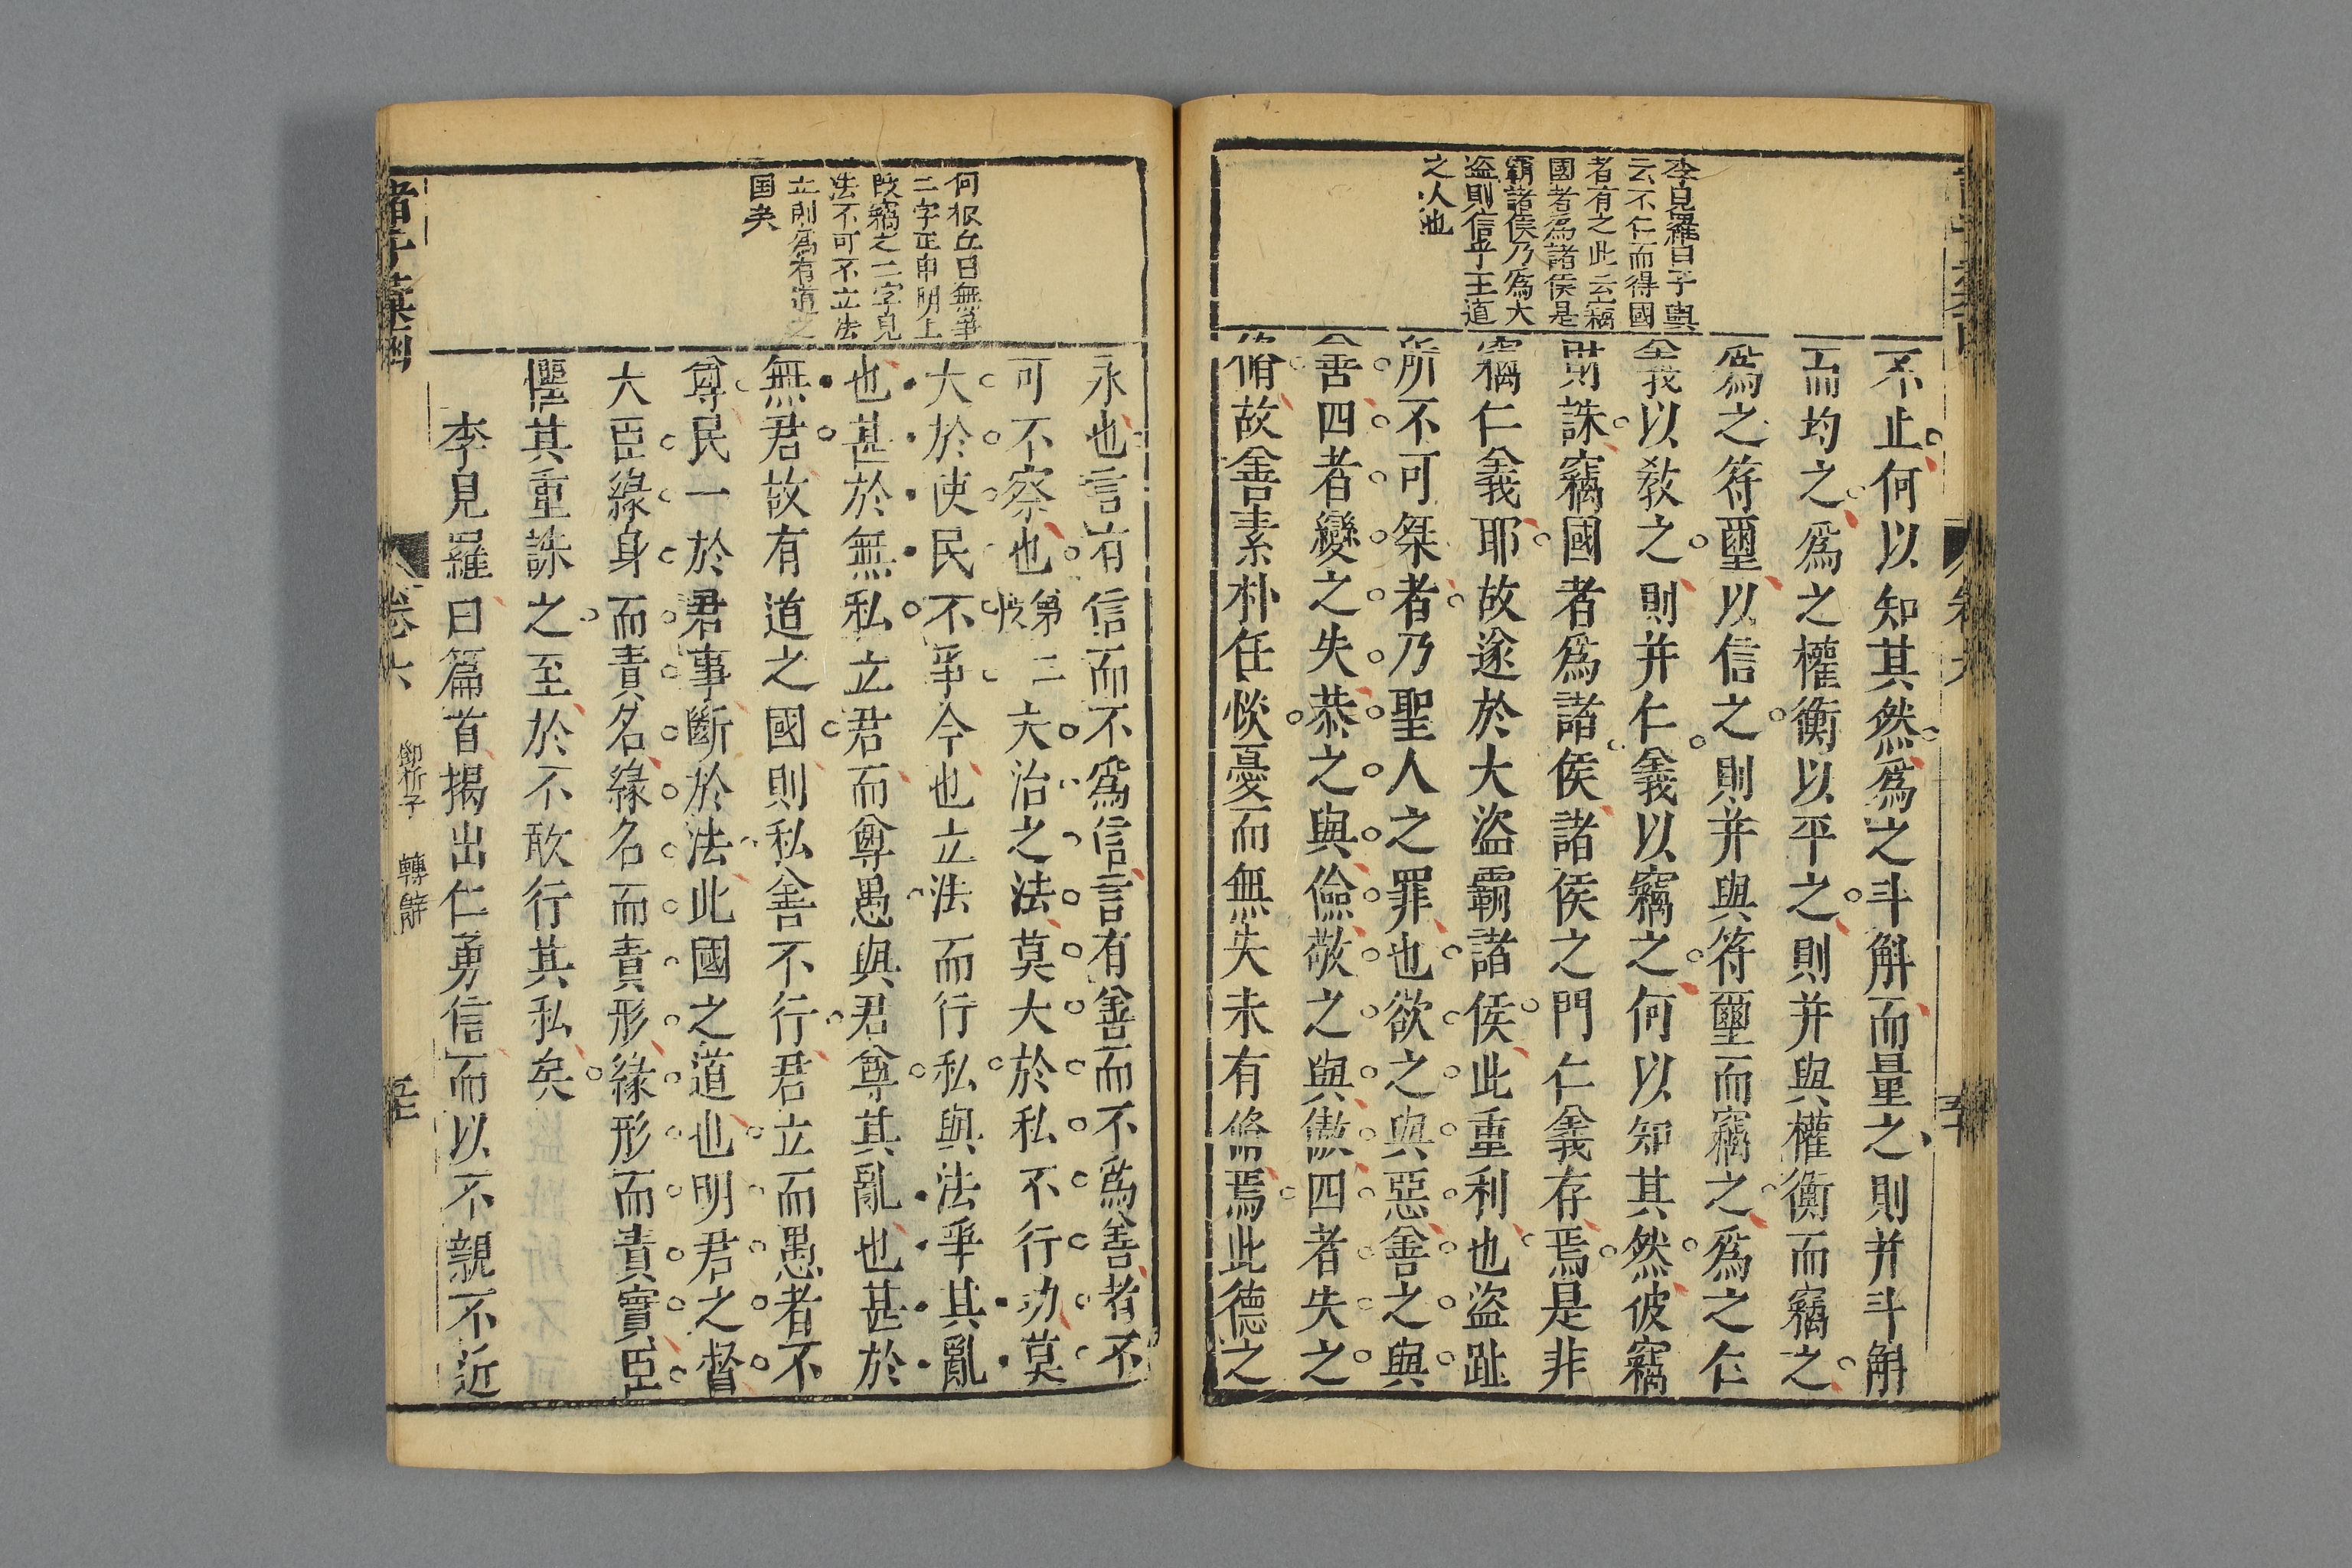 李見羅曰子與
云不仁而得國
者有之此云竊
國者為諸侯是
霸諸侯乃爲大
盜則信乎王道
之人也
不止何以知其然爲之斗斛而量之則并斗斛
而均之爲之權衡以平之則并與權衡而竊之
爲之符璽以信之則并與符璽而竊之爲之仁
義以敎之則并仁義以竊之何以知其然彼竊
財誅竊國者爲諸侯諸侯之門仁義存焉是非
竊仁義耶故遂於大盜霸諸侯此重利也盜跖
所不可桀者乃聖人之罪也欲之與惡善之與
善四者變之失恭之與儉敬之與傲四者失之
脩故善素朴任惔憂而無失未有脩焉此德之
何椒丘曰無爭
二字正申明上
段竊之二字見
法不可不立法
立則爲有道之
国矣
永也言有信而不爲信言有善而不爲善者不
可不察也 第二段 夫治之法莫大於私不行功莫
大於使民不爭今也立法而行私與法爭其亂
也甚於無私立君而尊愚與君尊其亂也甚於
無君故有道之國則私善不行君立而愚者不
尊民一於君事斷於法此國之道也明君之督
大臣緣身而責名緣名而責形緣形而責實臣
懼其重誅之至於不敢行其私矣
李見羅曰篇首揭出仁勇信而以不親不近
卷六 鄧析子 轉辭